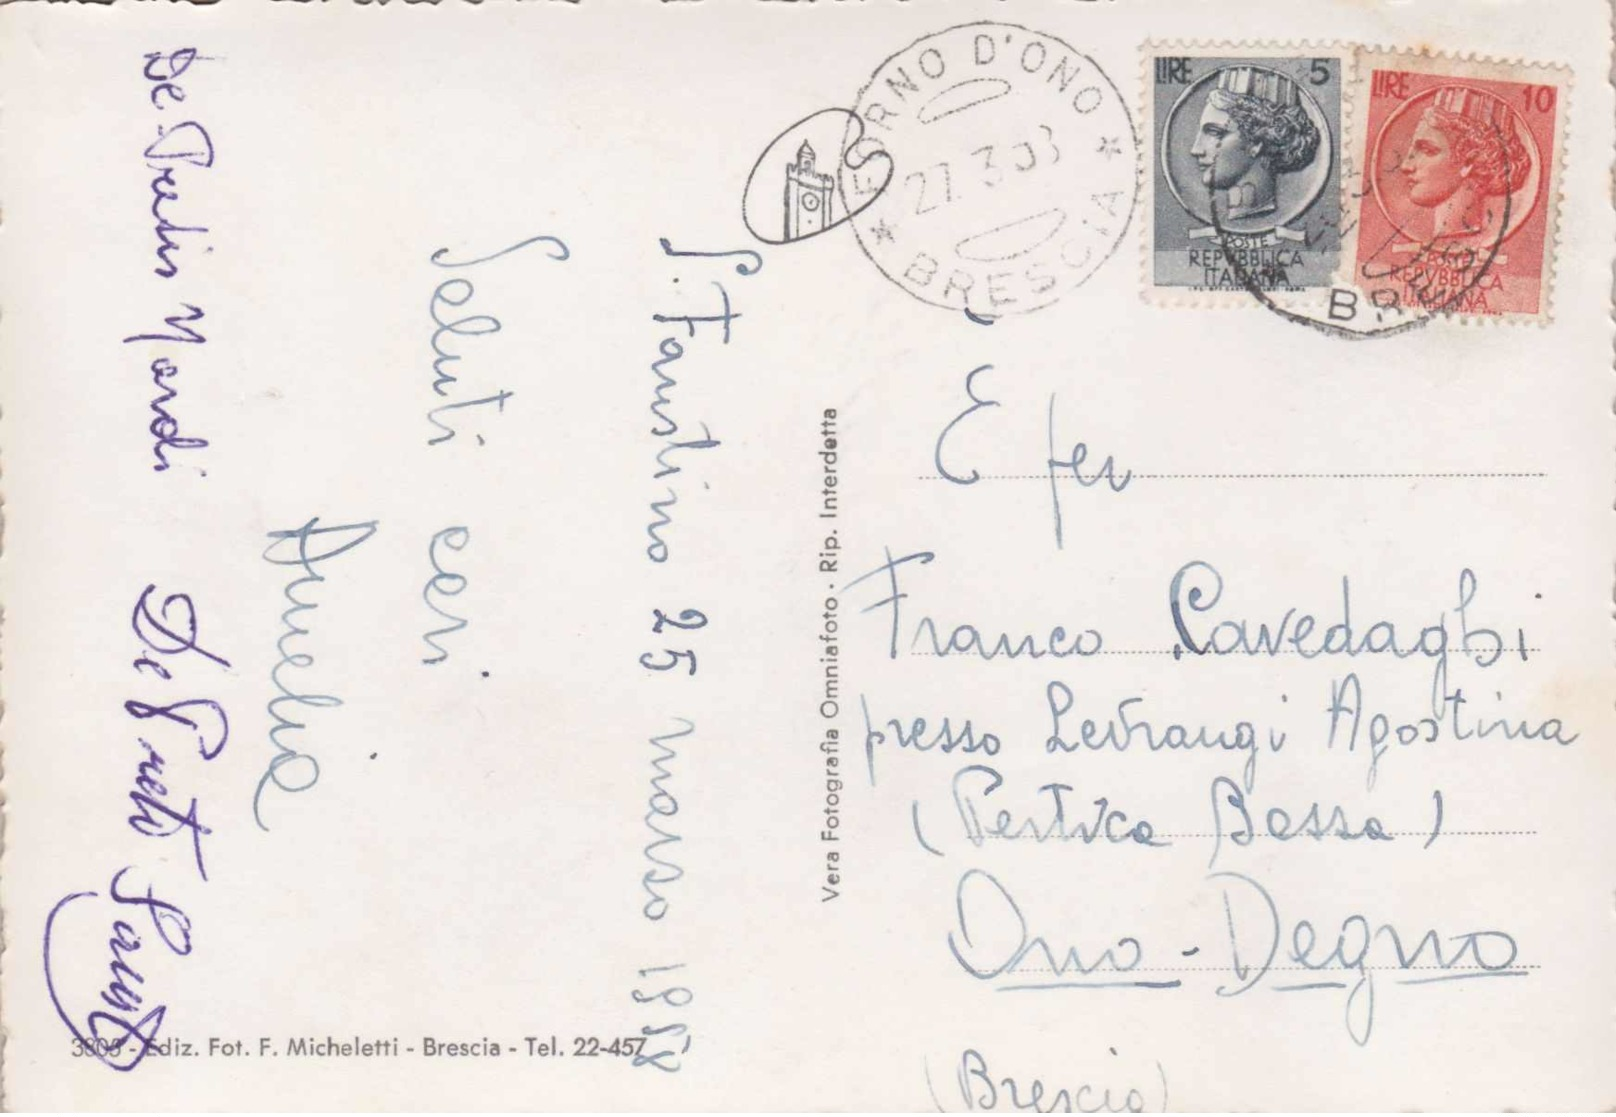 S. Faustino 25 marzo 1958
Saluti cari
Amelia
De Pretis Nardi De Preti
3808 - Ediz. Fot. F. Micheletti - Brescia - Tel. 22-457
Vera Fotografia Omniafoto · Rip. Interdetta
FORNO D'ONO * BRESCIA *
27.3.58
LIRE 5
POSTE
REPVBBLICA
ITALIANA
LIRE 10
POSTE
REPVBBLICA
ITALIANA
BR
Franco Cavedaghi
presso Levrangi Agostina
(Pertica Bassa)
Ono-Degno
(Brescia)